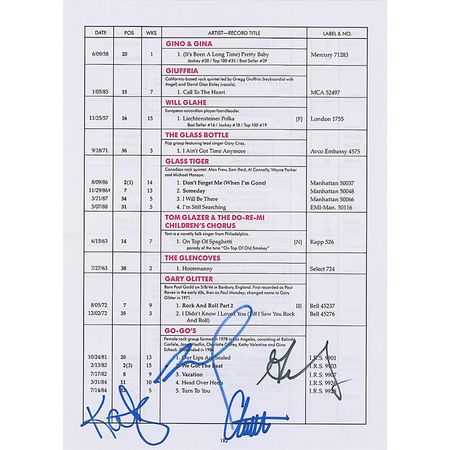 DATE POS WKS ARTIST—RECORD TITLE LABEL & NO.
GINO & GINA
6/09/58 20 1 1. (It's Been A Long Time) Pretty Baby Mercury 71283
Jockey #20 / Top 100 #34 / Best Seller #39
GIUFFRIA
California-based rock quintet led by Gregg Giuffria (keyboardist with
Angel) and David Glen Eisley (vocals).
1/05/85 15 7 1. Call To The Heart MCA 52497
WILL GLAHE
European accordion player/bandleader.
11/25/57 16 15 1. Liechtensteiner Polka [F] London 1755
Best Seller #16 / Jockey #18 / Top 100 #19
THE GLASS BOTTLE
Pop group featuring lead singer Gary Criss.
9/18/71 36 3 1. I Ain't Got Time Anymore Avco Embassy 4575
GLASS TIGER
Canadian rock quintet: Alan Frew, Sam Reid, Al Connelly, Wayne Parker
and Michael Hanson.
8/09/86 2(1) 14 1. Don't Forget Me (When I'm Gone) Manhattan 50037
11/29/86 7 13 2. Someday Manhattan 50048
3/21/87 34 5 3. I Will Be There Manhattan 50066
5/07/88 31 5 4. I'm Still Searching EMI-Man. 50116
TOM GLAZER & THE DO-RE-MI
CHILDREN'S CHORUS
Tom is a novelty folk singer from Philadelphia.
6/15/63 14 7 1. On Top Of Spaghetti [N] Kapp 526
parody of the tune "On Top Of Old Smokey"
THE GLENCOVES
7/27/63 38 2 1. Hootenanny Select 724
GARY GLITTER
Born Paul Gadd on 5/8/44 in Banbury, England. First recorded as Paul
Raven in the early 60s, then as Paul Monday; changed name to Gary
Glitter in 1971.
8/05/72 7 9 1. Rock And Roll Part 2 [I] Bell 45237
12/02/72 35 2 2. I Didn't Know I Loved You (Till I Saw You Rock Bell 45276
And Roll)
GO-GO'S
Female rock group formed in 1978 in Los Angeles, consisting of Belinda
Carlisle, Jane Wiedlin, Charlotte Caffey, Kathy Valentine and Gina
Schock. Disbanded in 1985.
10/24/81 20 13 1. Our Lips Are Sealed I.R.S. 9901
2/13/82 2(3) 15 2. We Got The Beat I.R.S. 9903
7/17/82 8 9 3. Vacation I.R.S. 9907
3/31/84 11 10 4. Head Over Heels I.R.S. 9926
7/14/84 5. Turn To You I.R.S. 9928
182